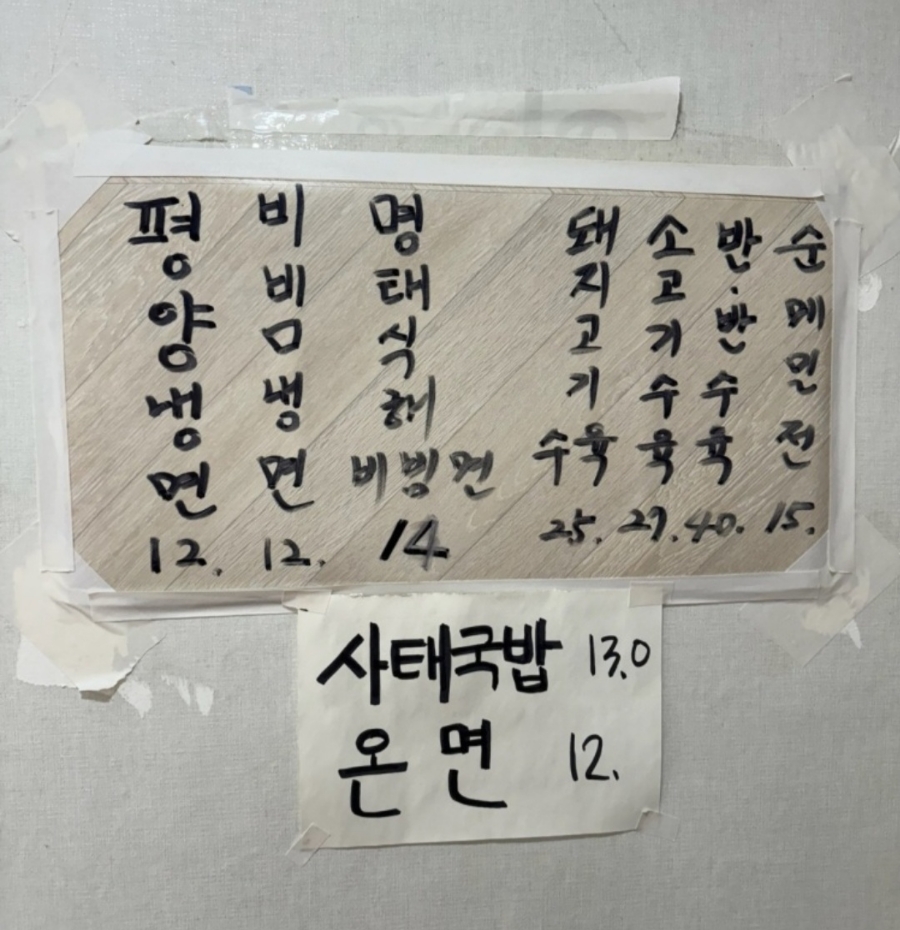 평양냉면 12.
비빔냉면 12.
명태식해비빔면 14
돼지고기수육 25.
소고기수육 27.
반·반수육 40.
순메밀전 15.
사태국밥 13.0
온면 12.